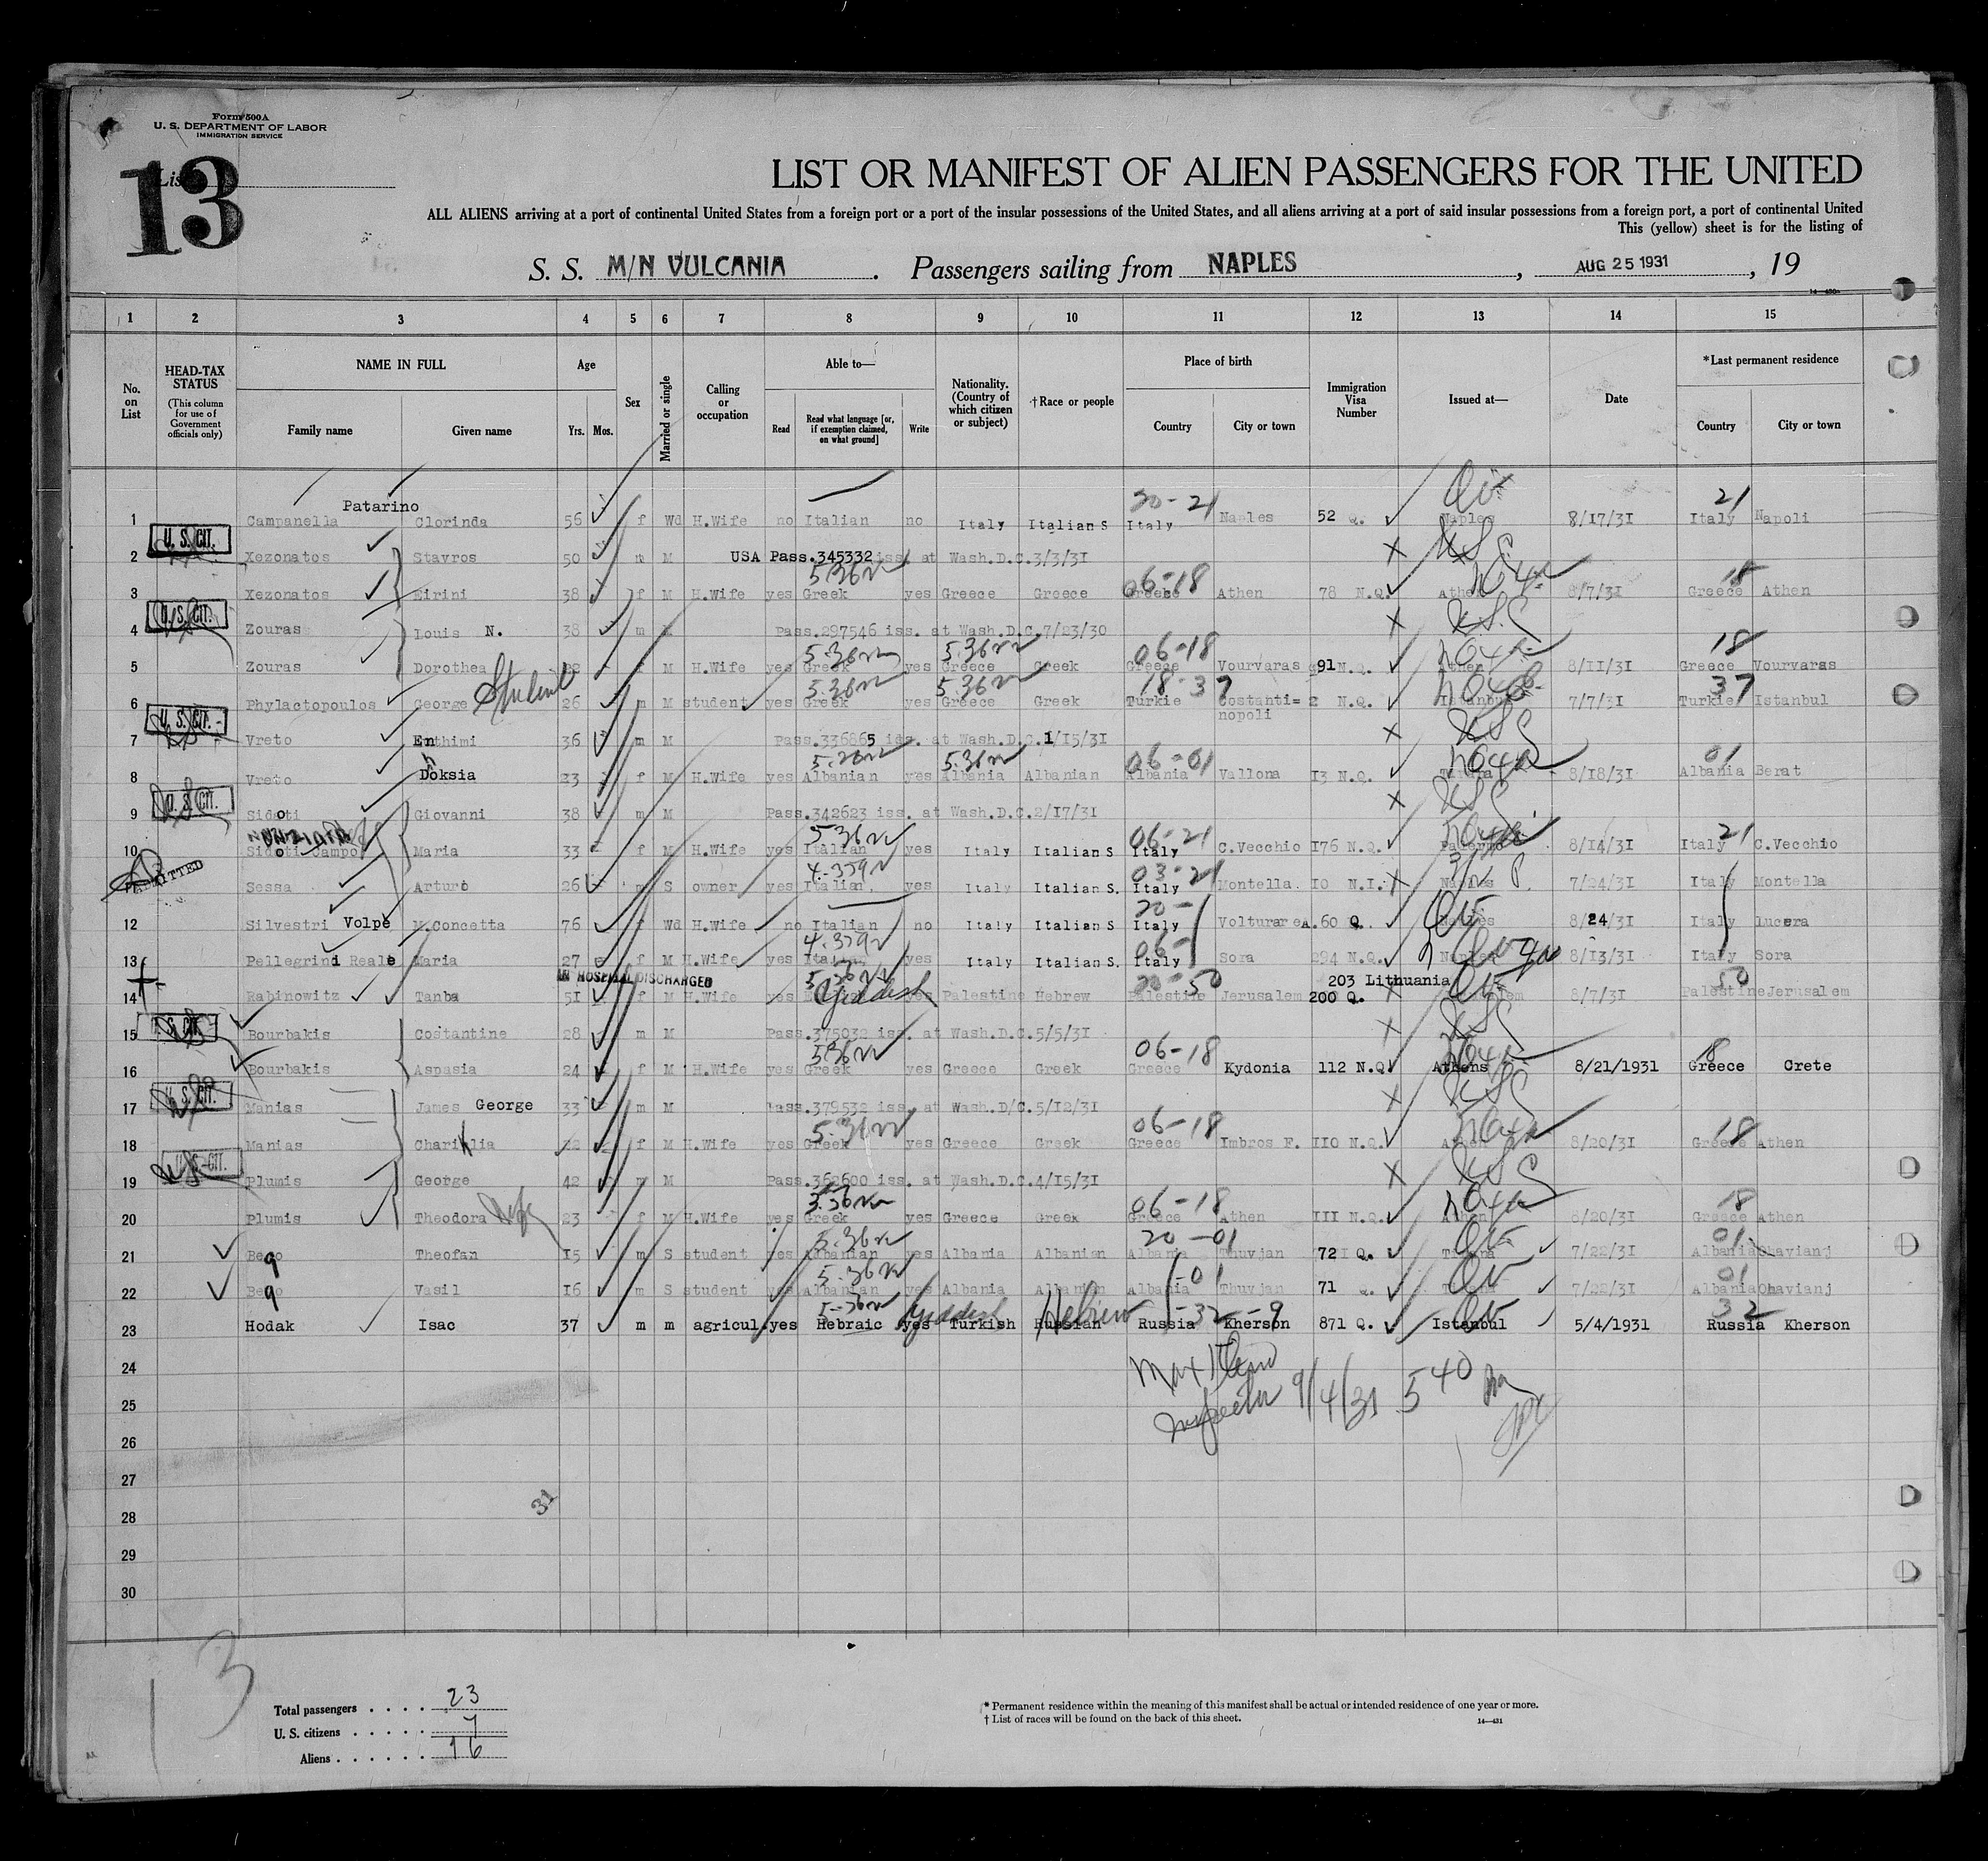 Form 500A
U. S. DEPARTMENT OF LABOR
IMMIGRATION SERVICE
List
13
LIST OR MANIFEST OF ALIEN PASSENGERS FOR THE UNITED
ALL ALIENS arriving at a port of continental United States from a foreign port or a port of the insular possessions of the United States, and all aliens arriving at a port of said insular possessions from a foreign port, a port of continental United
This (yellow) sheet is for the listing of
S. S. M/N VULCANIA. Passengers sailing from NAPLES, AUG 25 1931, 19
1 2 3 4 5 6 7 8 9 10 11 12 13 14 15
No. on List
HEAD-TAX STATUS (This column for use of Government officials only)
NAME IN FULL
Family name Given name
Age
Yrs. Mos.
Sex
Married or single
Calling or occupation
Able to—
Read Read what language [or, if exemption claimed, on what ground] Write
Nationality. (Country of which citizen or subject)
†Race or people
Place of birth
Country City or town
Immigration Visa Number
Issued at—
Date
*Last permanent residence
Country City or town
Patarino 20-21 21
1 Campanella Clorinda 56 f Wd H.Wife no Italian no Italy Italian S Italy Naples 52 Q. Naples 8/17/31 Italy Napoli
U. S. CIT.
2 Xezonatos Stavros 50 m M USA Pass.345332 iss. at Wash.D.C.3/3/31
06-18 18
3 Xezonatos Eirini 38 f M H.Wife yes Greek yes Greece Greece Greece Athen 78 N.Q. Athen 8/7/31 Greece Athen
U. S. CIT.
4 Zouras Louis N. 38 m M Pass.297546 iss. at Wash.D.C.7/23/30
06-18 18
5 Zouras Dorothea f M H.Wife yes Greek yes Greece Greek Greece Vourvaras 91 N.Q. Athen 8/11/31 Greece Vourvaras
Student 18-37 37
6 Phylactopoulos George 26 m M student yes Greek yes Greece Greek Turkie Costanti=nopoli 2 N.Q. Istanbul 7/7/31 Turkie Istanbul
U. S. CIT.
7 Vreto Enthimi 36 m M Pass.336865 iss. at Wash.D.C.1/15/31
06-01 01
8 Vreto Doksia 23 f M H.Wife yes Albanian yes Albania Albanian Albania Vallona 13 N.Q. 8/18/31 Albania Berat
U. S. CIT.
9 Sidoti Giovanni 38 m M Pass.342623 iss. at Wash.D.C.2/17/31
06-21 21
10 Sidoti Campo Maria 33 f M H.Wife yes Italian yes Italy Italian S Italy C.Vecchio 176 N.Q. Palermo 8/14/31 Italy C.Vecchio
03-21
ADMITTED Sessa Arturo 26 m S owner yes Italian yes Italy Italian S. Italy Montella 10 N.I. Naples 7/24/31 Italy Montella
20-
12 Silvestri Volpe M.Concetta 76 f Wd H.Wife no Italian no Italy Italian S Italy Volturare A. 60 Q. Naples 8/24/31 Italy Lucera
06-
13 Pellegrini Reale Maria 27 f M H.Wife yes Italian yes Italy Italian S. Italy Sora 294 N.Q. Naples 8/13/31 Italy Sora
IN HOSPITAL DISCHARGED 20-50 203 Lithuania 50
14 Rabinowitz Tanba 51 f M H.Wife yes Yiddish yes Palestine Hebrew Palestine Jerusalem 200 Q. 8/7/31 Palestine Jerusalem
U. S. CIT.
15 Bourbakis Costantine 28 m M Pass.375032 iss. at Wash.D.C.5/5/31
06-18 18
16 Bourbakis Aspasia 24 f M H.Wife yes Greek yes Greece Greek Greece Kydonia 112 N.Q. Athens 8/21/1931 Greece Crete
U. S. CIT.
17 Manias James George 33 m M Pass.379532 iss. at Wash.D/C.5/12/31
06-18 18
18 Manias Chariklia 22 f M H.Wife yes Greek yes Greece Greek Greece Imbros F. 110 N.Q. Athen 8/20/31 Greece Athen
U. S. CIT.
19 Plumis George 42 m M Pass.362600 iss. at Wash.D.C.4/15/31
Wife 06-18 18
20 Plumis Theodora 23 f M H.Wife yes Greek yes Greece Greek Greece Athen 111 N.Q. Athen 8/20/31 Greece Athen
20-01 01
21 Bego Theofan 15 m S student yes Albanian yes Albania Albanian Albania Thuvjan 72 Q. Tirana 7/22/31 Albania Ohavianj
-01 01
22 Bego Vasil 16 m S student yes Albanian yes Albania Albanian Albania Thuvjan 71 Q. 7/22/31 Albania Ohavianj
Yiddish Hebrew -32-9 32
23 Hodak Isac 37 m m agricul. yes Hebraic yes Turkish Russian Russia Kherson 871 Q. Istanbul 5/4/1931 Russia Kherson
24
Inspector 9/4/31 5 40
25
26
27
28
31
29
30
13
Total passengers . . . . 23
U. S. citizens . . . . . 7
Aliens . . . . . . 16
* Permanent residence within the meaning of this manifest shall be actual or intended residence of one year or more.
† List of races will be found on the back of this sheet.
14—431